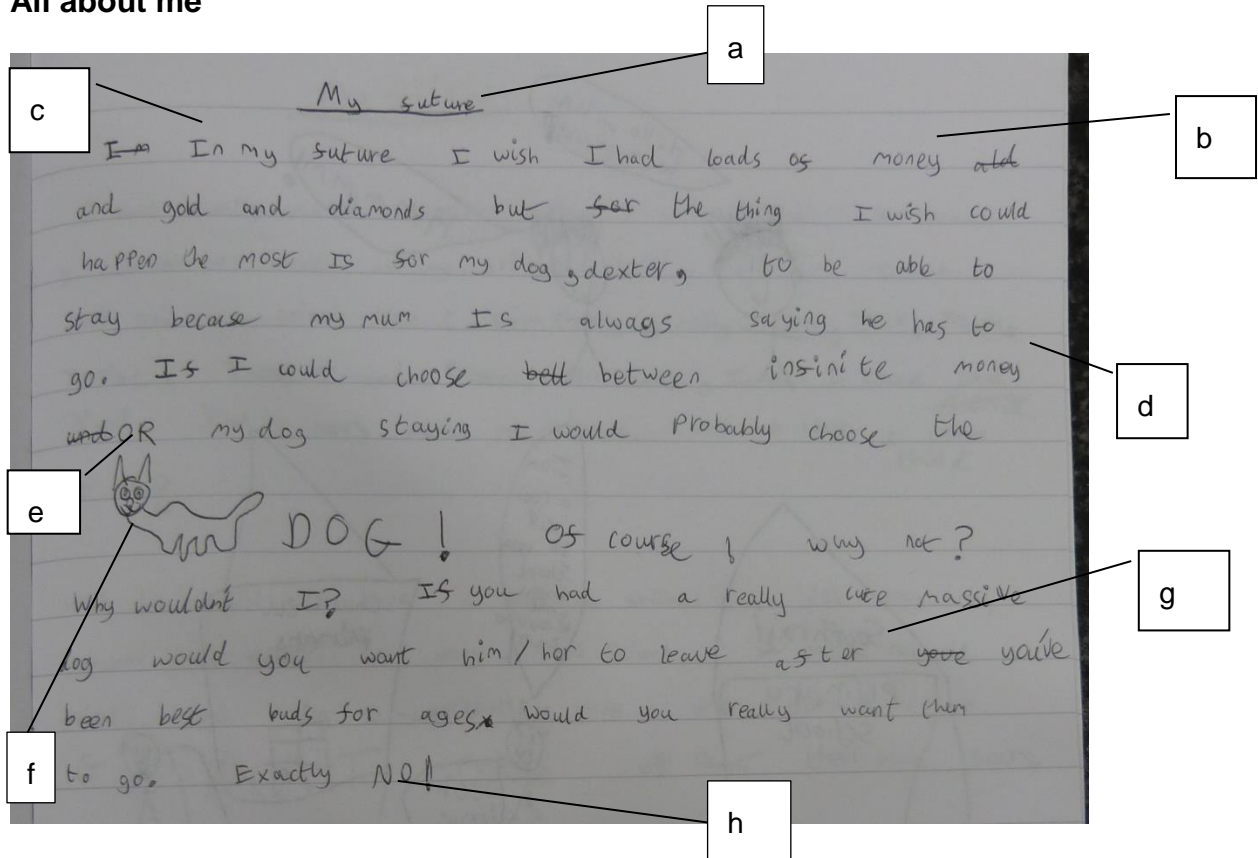 All about me
a
c
My future
b
In my future I wish I had loads of money
and gold and diamonds but the thing I wish could
happen the most Is for my dog, dexter, to be able to
stay because my mum Is always saying he has to
go. If I could choose between infinite money
d
OR my dog staying I would Probably choose the
e
DOG! Of course, why not?
Why wouldn't I? If you had a really cute massive
g
dog would you want him/her to leave after you've
been best buds for ages would you really want them
f
to go. Exactly NO!
h